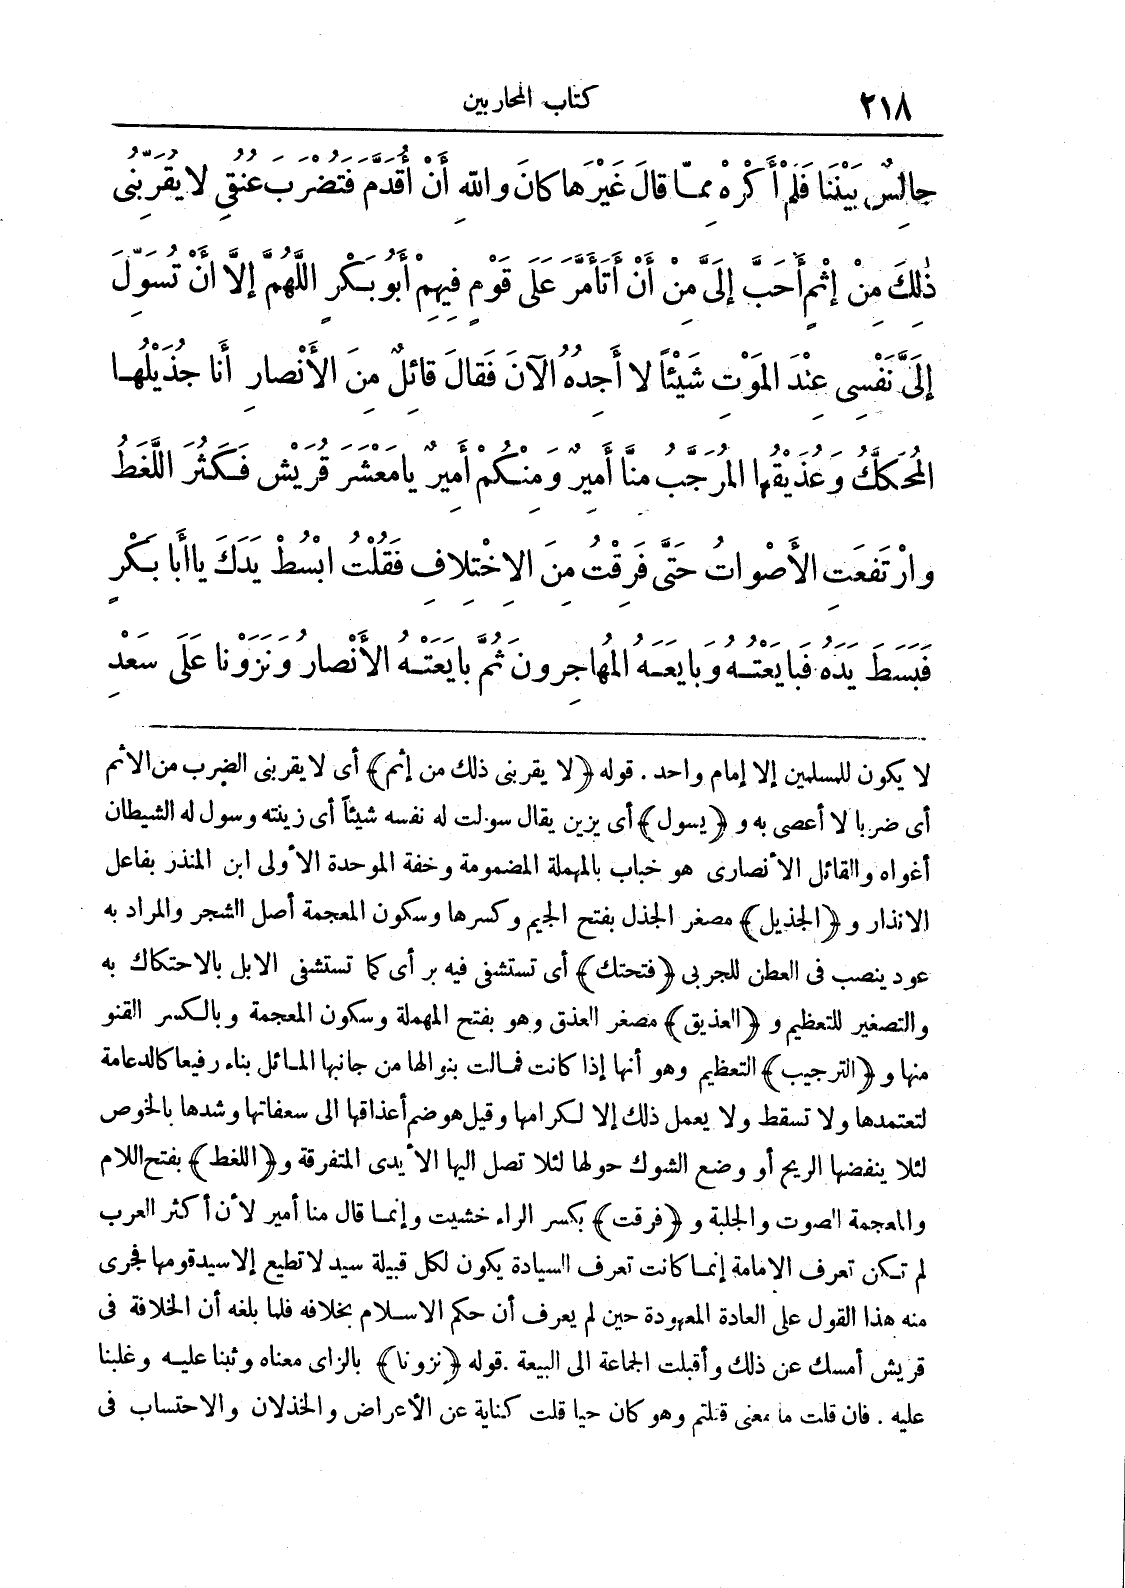 ٢١٨
كتاب المحاربين
جالِسٌ بَيْنَنا فَلَمْ أَكْرَهْ مِمّا قالَ غَيْرَها كانَ واللهِ أَنْ أُقَدَّمَ فَتُضْرَبَ عُنُقِي لا يُقَرِّبُنِى
ذٰلِكَ مِنْ إثْمٍ أَحَبَّ إلَىَّ مِنْ أَنْ أَتَأَمَّرَ عَلَى قَوْمٍ فِيهِمْ أَبُو بَكْرٍ اللَّهُمَّ إلاَّ أَنْ تُسَوِّلَ
إلَىَّ نَفْسِى عِنْدَ المَوْتِ شَيْئاً لا أَجِدُهُ الآنَ فَقالَ قائِلٌ مِنَ الأَنْصارِ أَنا جُذَيْلُها
المُحَكَّكُ وَعُذَيْقُها المُرَجَّبُ مِنَّا أَمِيرٌ وَمِنْكُمْ أَمِيرٌ يا مَعْشَرَ قُرَيْشٍ فَكَثُرَ اللَّغَطُ
وارْتَفَعَتِ الأَصْواتُ حَتَّى فَرِقْتُ مِنَ الاِخْتِلافِ فَقُلْتُ ابْسُطْ يَدَكَ يا أَبا بَكْرٍ
فَبَسَطَ يَدَهُ فَبايَعْتُهُ وَبايَعَهُ المُهاجِرُونَ ثُمَّ بايَعَتْهُ الأَنْصارُ وَنَزَوْنا عَلَى سَعْدِ
لا يكون للمسلمين إلا إمام واحد . قوله ﴿لا يقربنى ذلك من إثم﴾ أى لا يقربنى الضرب من الاثم
أى ضربا لا أعصى به و ﴿يسول﴾ أى يزين يقال سولت له نفسه شيئاً أى زينته وسول له الشيطان
أغواه والقائل الأنصارى هو خباب بالمهملة المضمومة وخفة الموحدة الأولى ابن المنذر بفاعل
الانذار و ﴿الجذيل﴾ مصغر الجذل بفتح الجيم وكسرها وسكون المعجمة أصل الشجر والمراد به
عود ينصب فى العطن للجربى ﴿فتحتك﴾ أى تستشفى فيه بر أى كما تستشفى الابل بالاحتكاك به
والتصغير للتعظيم و ﴿العذيق﴾ مصغر العذق وهو بفتح المهملة وسكون المعجمة وبالكسر القنو
منها و ﴿الترجيب﴾ التعظيم وهو أنها إذا كانت فمالت بنوا لها من جانبها المائل بناء رفيعا كالدعامة
لتعتمدها ولا تسقط ولا يعمل ذلك إلا لكرامها وقيل هو ضم أعذاقها الى سعفاتها وشدها بالخوص
لئلا ينفضها الريح أو وضع الشوك حولها لئلا تصل اليها الأيدى المتفرقة و ﴿اللغط﴾ بفتح اللام
والمعجمة الصوت والجلبة و ﴿فرقت﴾ بكسر الراء خشيت وإنما قال منا أمير لأن أكثر العرب
لم تكن تعرف الامامة إنما كانت تعرف السيادة يكون لكل قبيلة سيد لا تطيع إلا سيد قومها فجرى
منه هذا القول على العادة المعهودة حين لم يعرف أن حكم الاسلام بخلافه فلما بلغه أن الخلافة فى
قريش أمسك عن ذلك وأقبلت الجماعة الى البيعة . قوله ﴿نزونا﴾ بالزاى معناه وثبنا عليه وغلبنا
عليه . فان قلت ما معنى قتلتم وهو كان حيا قلت كناية عن الأعراض والخذلان والاحتساب فى